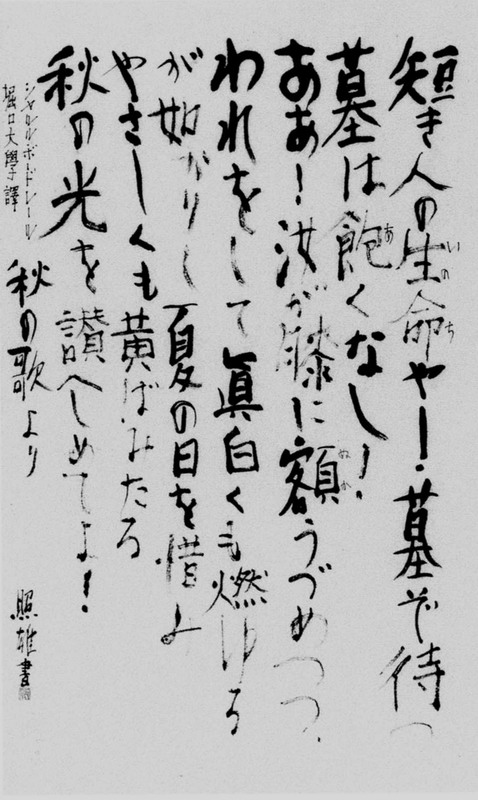 短き人の生命やー.墓ぞ待つ
いのち
墓は飽くなし!
あ
ああ!汝が膝に額うづめつつ、
ぬか
われをして眞白くも燃ゆる
が如かりし夏の日を惜み
やさしくも黄ばみたる
秋の光を讃へしめてよ!
シャルルボードレール
堀口大學譯
秋の歌より
照雄書